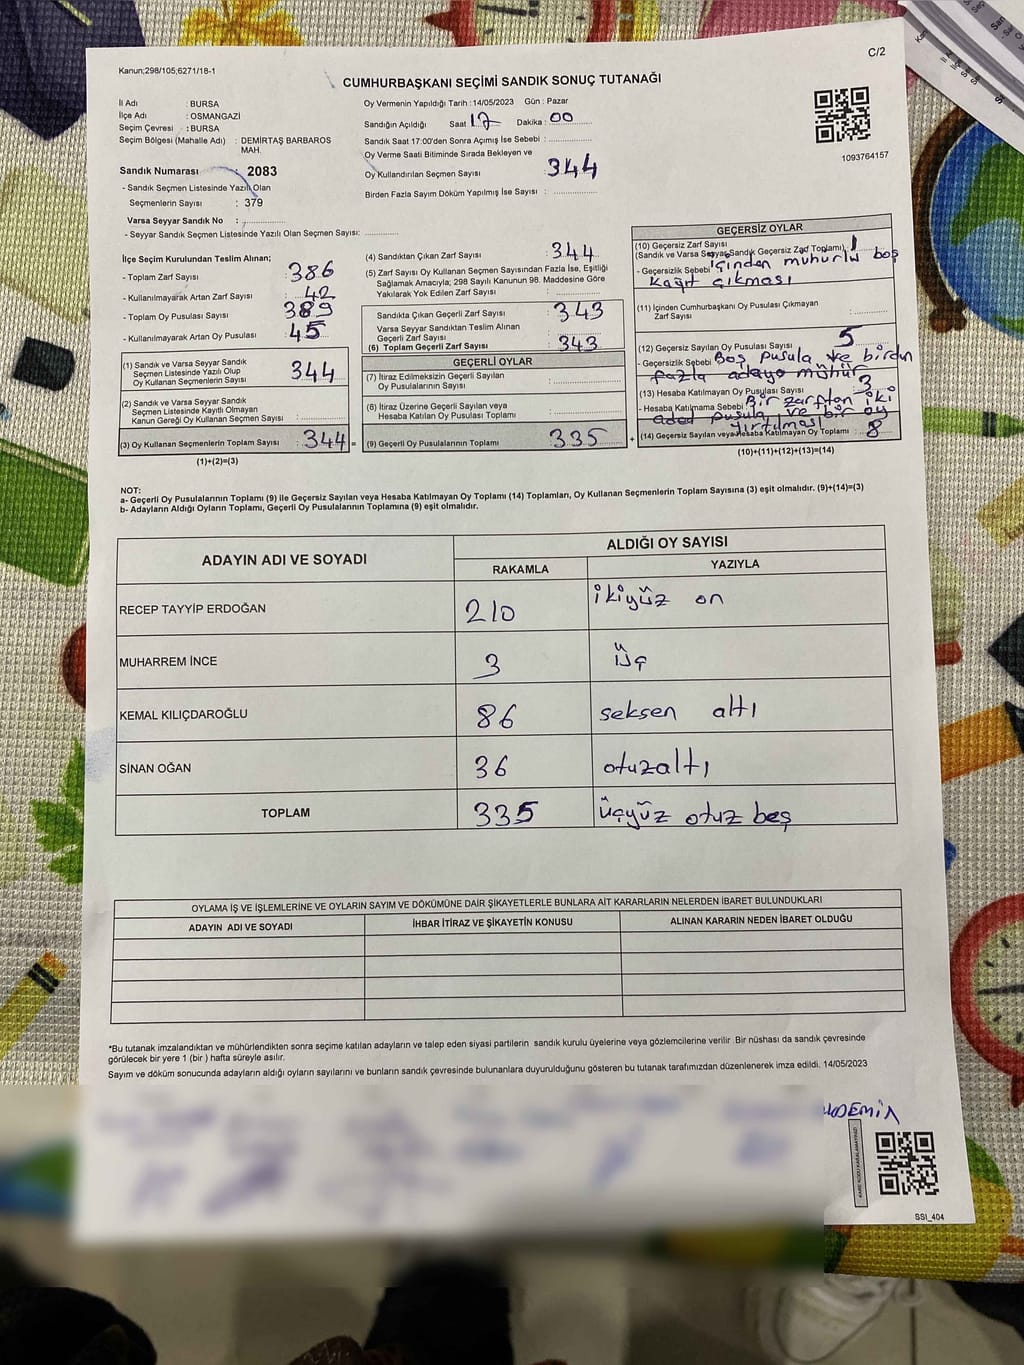 C/2
Kanun;298/105;6271/18-1
CUMHURBAŞKANI SEÇİMİ SANDIK SONUÇ TUTANAĞI
İl Adı : BURSA
İlçe Adı : OSMANGAZİ
Seçim Çevresi : BURSA
Seçim Bölgesi (Mahalle Adı) : DEMİRTAŞ BARBAROS
MAH.
Sandık Numarası : 2083
- Sandık Seçmen Listesinde Yazılı Olan
Seçmenlerin Sayısı : 379
Varsa Seyyar Sandık No :
- Seyyar Sandık Seçmen Listesinde Yazılı Olan Seçmen Sayısı:
Oy Vermenin Yapıldığı Tarih : 14/05/2023 Gün : Pazar
Sandığın Açıldığı Saat 17 Dakika : 00
Sandık Saat 17:00'den Sonra Açımış İse Sebebi :
Oy Verme Saati Bitiminde Sırada Bekleyen ve
Oy Kullandırılan Seçmen Sayısı : 344
Birden Fazla Sayım Döküm Yapılmış İse Sayısı :
1093764157
İlçe Seçim Kurulundan Teslim Alınan;
- Toplam Zarf Sayısı : 386
- Kullanılmayarak Artan Zarf Sayısı : 42
- Toplam Oy Pusulası Sayısı : 389
- Kullanılmayarak Artan Oy Pusulası : 45
(1) Sandık ve Varsa Seyyar Sandık
Seçmen Listesinde Yazılı Olup
Oy Kullanan Seçmenlerin Sayısı : 344
(2) Sandık ve Varsa Seyyar Sandık
Seçmen Listesinde Kayıtlı Olmayan
Kanun Gereği Oy Kullanan Seçmen Sayısı :
(3) Oy Kullanan Seçmenlerin Toplam Sayısı : 344 =
(1)+(2)=(3)
(4) Sandıktan Çıkan Zarf Sayısı : 344
(5) Zarf Sayısı Oy Kullanan Seçmen Sayısından Fazla İse, Eşitliği
Sağlamak Amacıyla; 298 Sayılı Kanunun 98. Maddesine Göre
Yakılarak Yok Edilen Zarf Sayısı :
Sandıkta Çıkan Geçerli Zarf Sayısı : 343
Varsa Seyyar Sandıktan Teslim Alınan
Geçerli Zarf Sayısı :
(6) Toplam Geçerli Zarf Sayısı : 343
GEÇERLİ OYLAR
(7) İtiraz Edilmeksizin Geçerli Sayılan
Oy Pusulalarının Sayısı :
(8) İtiraz Üzerine Geçerli Sayılan veya
Hesaba Katılan Oy Pusulası Toplamı :
(9) Geçerli Oy Pusulalarının Toplamı : 335 +
GEÇERSİZ OYLAR
(10) Geçersiz Zarf Sayısı
(Sandık ve Varsa Seyyar Sandık Geçersiz Zarf Toplamı) : 1
- Geçersizlik Sebebi : içinden mühürlü boş
kağıt çıkması
(11) İçinden Cumhurbaşkanı Oy Pusulası Çıkmayan
Zarf Sayısı :
(12) Geçersiz Sayılan Oy Pusulası Sayısı : 5
- Geçersizlik Sebebi Boş pusula ve birden
fazla adaya mühür
(13) Hesaba Katılmayan Oy Pusulası Sayısı : 3
- Hesaba Katılmama Sebebi : Bir zarftan iki
aded pusula ve bir oy
yırtılması
(14) Geçersiz Sayılan veya Hesaba Katılmayan Oy Toplamı : 8
(10)+(11)+(12)+(13)=(14)
NOT:
a- Geçerli Oy Pusulalarının Toplamı (9) ile Geçersiz Sayılan veya Hesaba Katılmayan Oy Toplamı (14) Toplamları, Oy Kullanan Seçmenlerin Toplam Sayısına (3) eşit olmalıdır. (9)+(14)=(3)
b- Adayların Aldığı Oyların Toplamı, Geçerli Oy Pusulalarının Toplamına (9) eşit olmalıdır.
ADAYIN ADI VE SOYADI ALDIĞI OY SAYISI
RAKAMLA YAZIYLA
RECEP TAYYİP ERDOĞAN 210 ikiyüz on
MUHARREM İNCE 3 üç
KEMAL KILIÇDAROĞLU 86 seksen altı
SİNAN OĞAN 36 otuzaltı
TOPLAM 335 üçyüz otuz beş
OYLAMA İŞ VE İŞLEMLERİNE VE OYLARIN SAYIM VE DÖKÜMÜNE DAİR ŞİKAYETLERLE BUNLARA AİT KARARLARIN NELERDEN İBARET BULUNDUKLARI
ADAYIN ADI VE SOYADI İHBAR İTİRAZ VE ŞİKAYETİN KONUSU ALINAN KARARIN NEDEN İBARET OLDUĞU
*Bu tutanak imzalandıktan ve mühürlendikten sonra seçime katılan adayların ve talep eden siyasi partilerin sandık kurulu üyelerine veya gözlemcilerine verilir .Bir nüshası da sandık çevresinde
görülecek bir yere 1 (bir ) hafta süreyle asılır.
Sayım ve döküm sonucunda adayların aldığı oyların sayılarını ve bunların sandık çevresinde bulunanlara duyurulduğunu gösteren bu tutanak tarafımızdan düzenlenerek imza edildi. 14/05/2023
KARE KODU KARALAMAYINIZ!
SSI_404